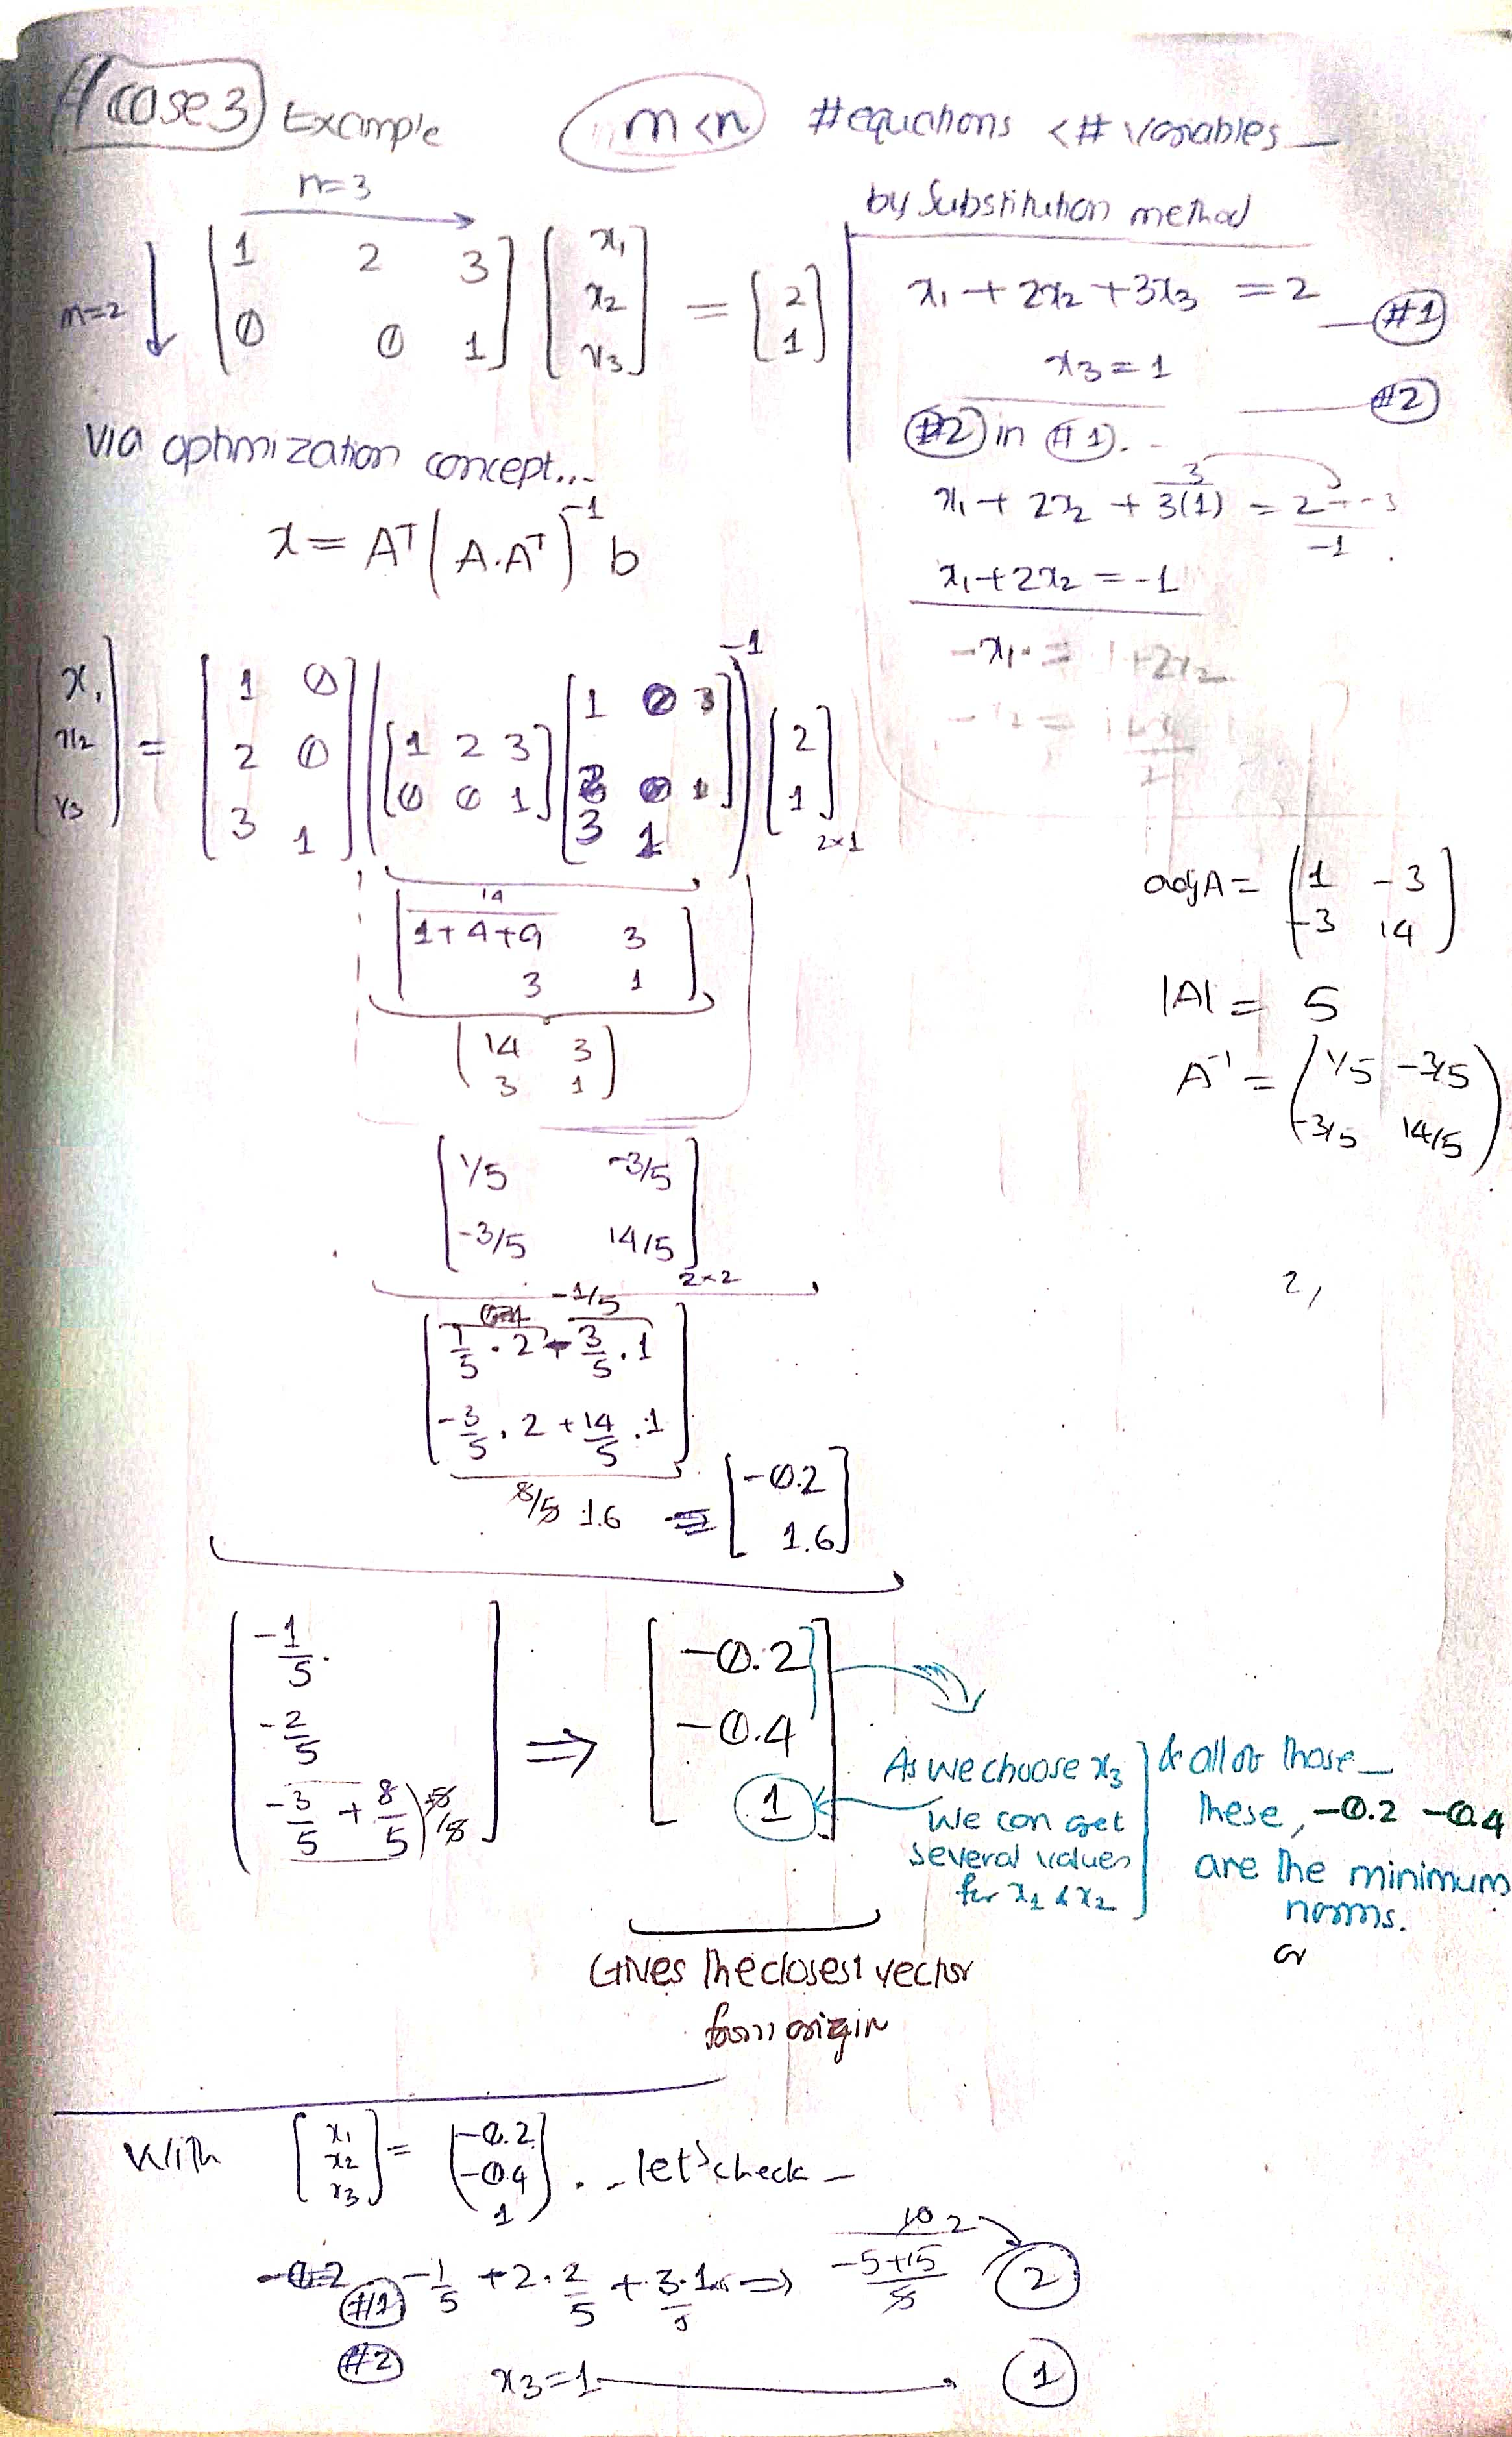 case 3 Example m<n #equations <# variables
n=3
m=2 [1 2 3; 0 0 1] [x1; x2; x3] = [2; 1]
by substitution method
x1 + 2x2 + 3x3 = 2 — #1
x3 = 1
— #2
#2 in #1.
3
x1 + 2x2 + 3(1) = 2 - 3
-1
x1 + 2x2 = -1
-x1 = 1+2x2
via optimization concept...
x = A^T (A.A^T)^-1 b
[x1; x2; x3] = [1 0; 2 0; 3 1] ([1 2 3; 0 0 1] [1 0; 2 0; 3 1])^-1 [2; 1] 2×1
14
[1+4+9 3; 3 1]
(14 3; 3 1)
adjA = (1 -3; -3 14)
|A| = 5
A^-1 = (1/5 -3/5; -3/5 14/5)
[1/5 -3/5; -3/5 14/5] 2×2
2,
-1/5
[1/5 . 2 - 3/5 . 1; -3/5 . 2 + 14/5 . 1]
8/5 1.6 = [-0.2; 1.6]
[-1/5; -2/5; -3/5 + 8/5] ⇒ [-0.2; -0.4; 1]
As we choose x3
we can get
several values
for x1 & x2
& all of those
these, -0.2 -0.4
are the minimum
norms.
or
Gives the closest vector
from origin
With [x1; x2; x3] = [-0.2; -0.4; 1] ... let's check -
10 2
#1 -1/5 + 2. 2/5 + 3.1 ⇒ -5+15/5 2
#2 x3=1 1